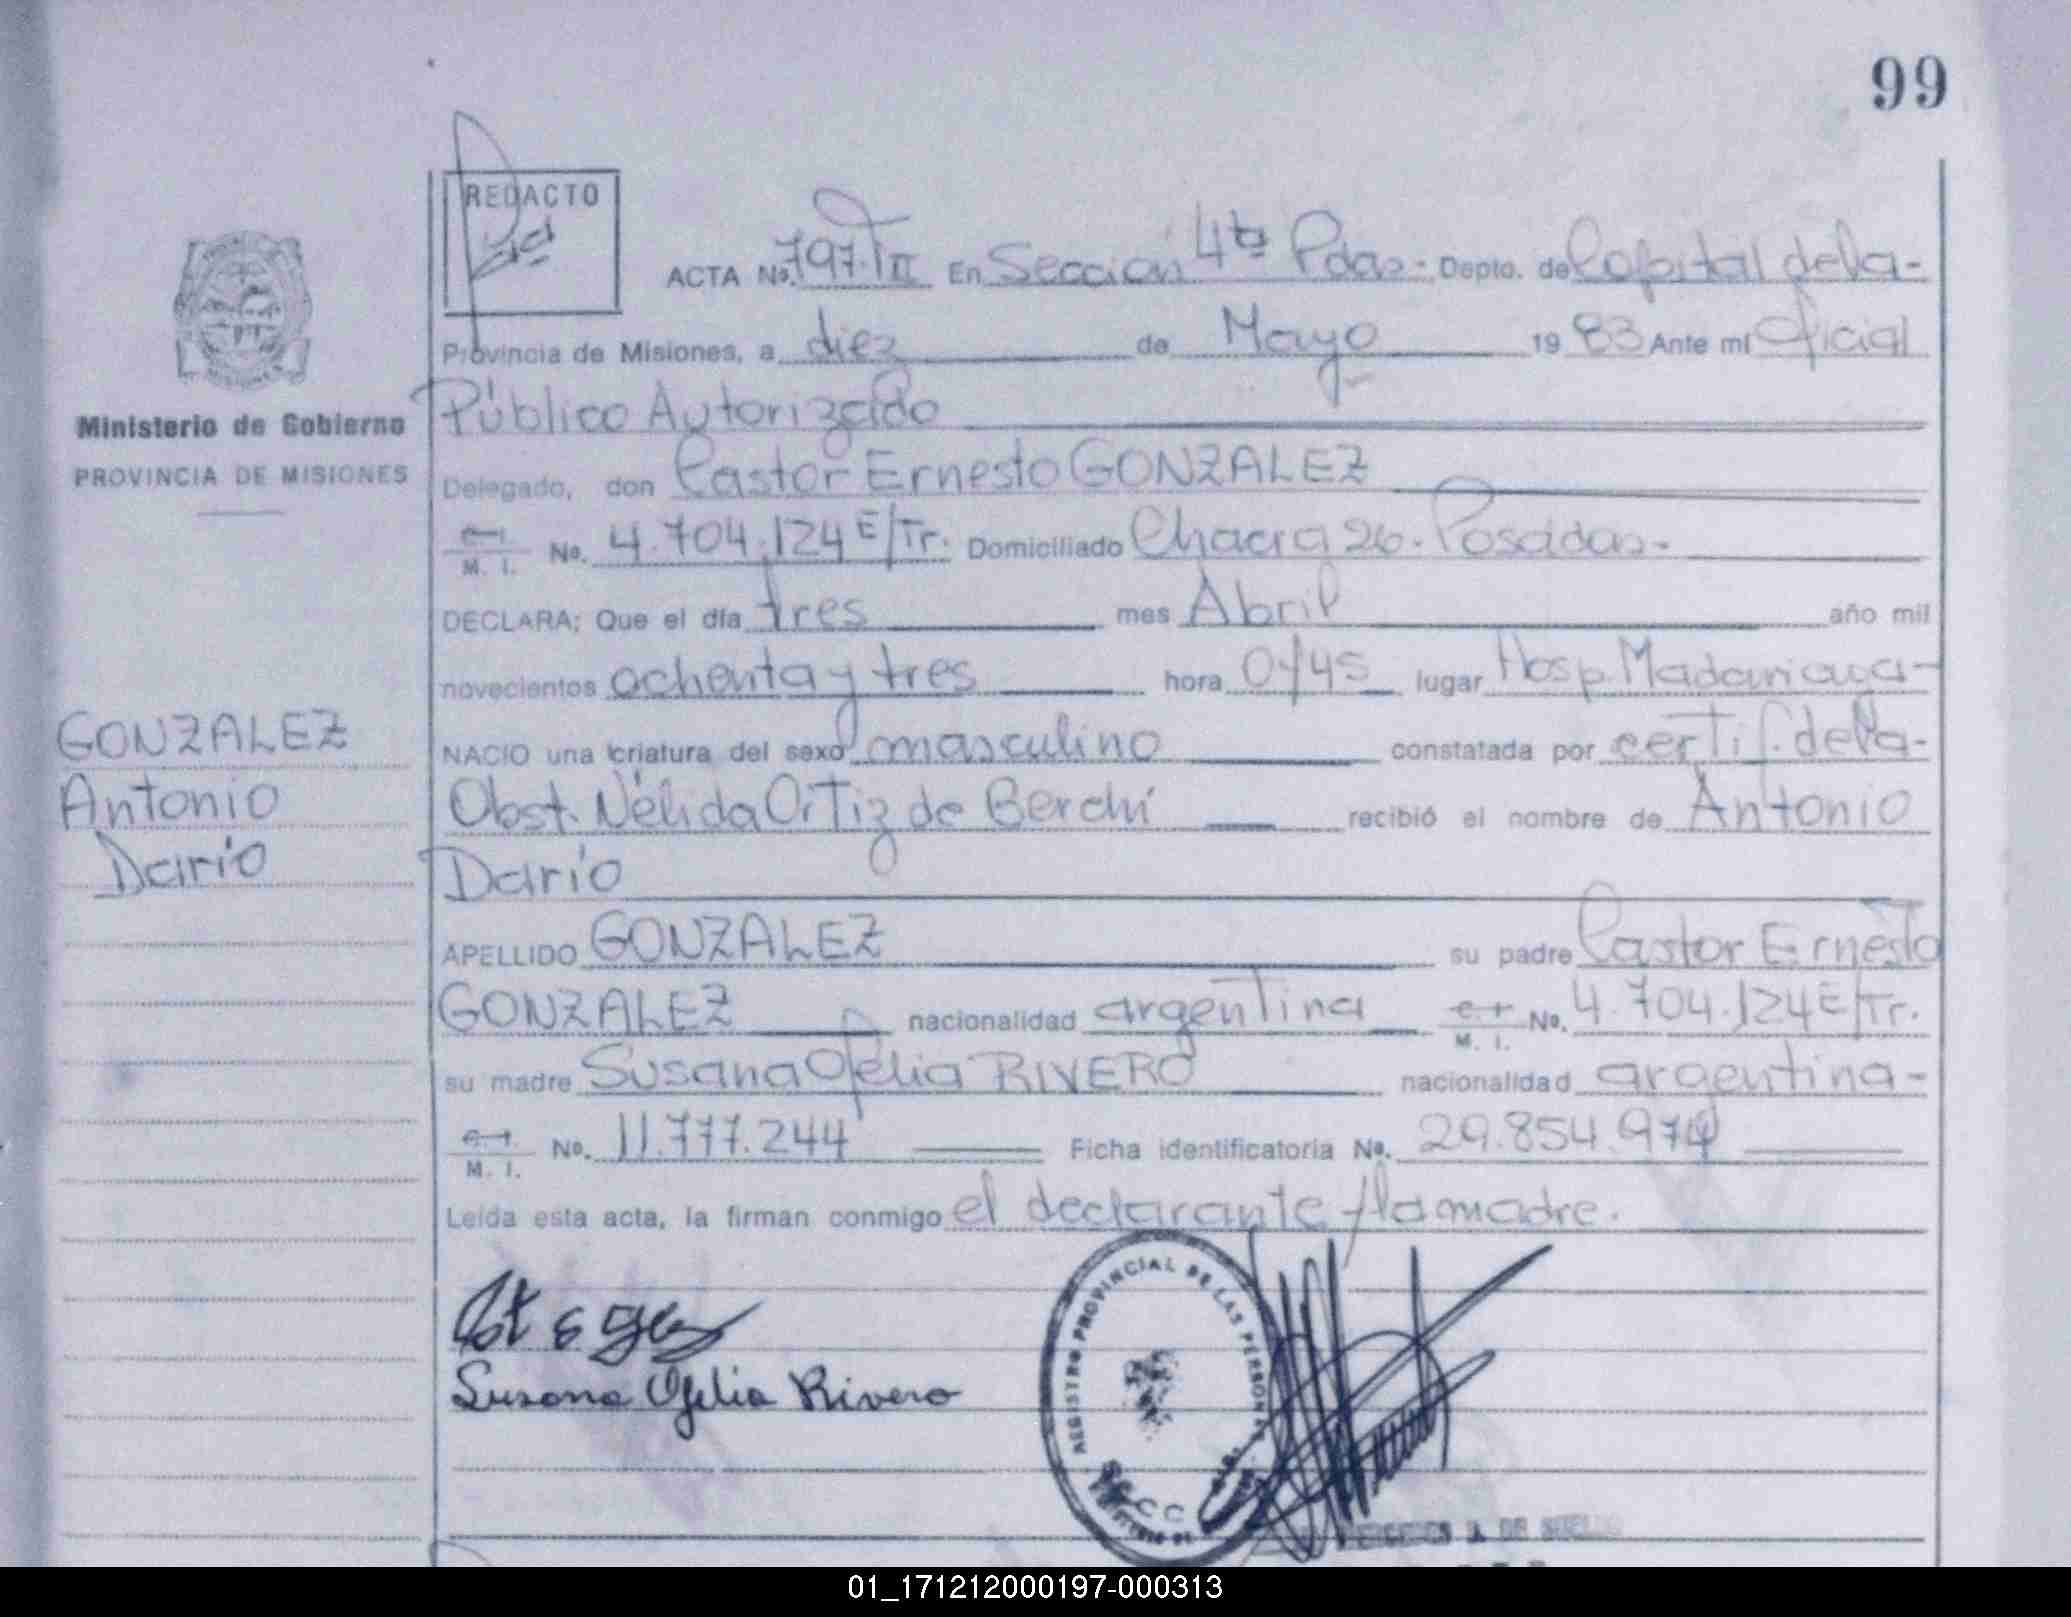 99
REDACTO
ACTA No. 797. T II En Sección 4ta Pdas- Depto. de Capital de la-
Provincia de Misiones, a diez de Mayo 19 83 Ante mí Oficial
Ministerio de Gobierno
PROVINCIA DE MISIONES
Público Autorizado
Delegado, don Castor Ernesto GONZALEZ
M. I. No. 4.704.124 E/Tr. Domiciliado Chacra 26. Posadas-
DECLARA; Que el día tres mes Abril año mil
novecientos ochenta y tres hora 0/45 lugar Hosp. Madariaga-
GONZALEZ
Antonio
Darío
NACIO una criatura del sexo masculino constatada por certif. de la-
Obst. Nélida Ortiz de Berchi recibió el nombre de Antonio
Darío
APELLIDO GONZALEZ su padre Castor Ernesto
GONZALEZ nacionalidad argentina M. I. No. 4.704.124 E/Tr.
su madre Susana Ofelia RIVERO nacionalidad argentina-
M. I. No. 11.777.244 Ficha identificatoria No. 29.854.974
Leída esta acta, la firman conmigo el declarante y la madre.
Susana Ofelia Rivero
REGISTRO PROVINCIAL DE LAS PERSONAS
01_171212000197-000313